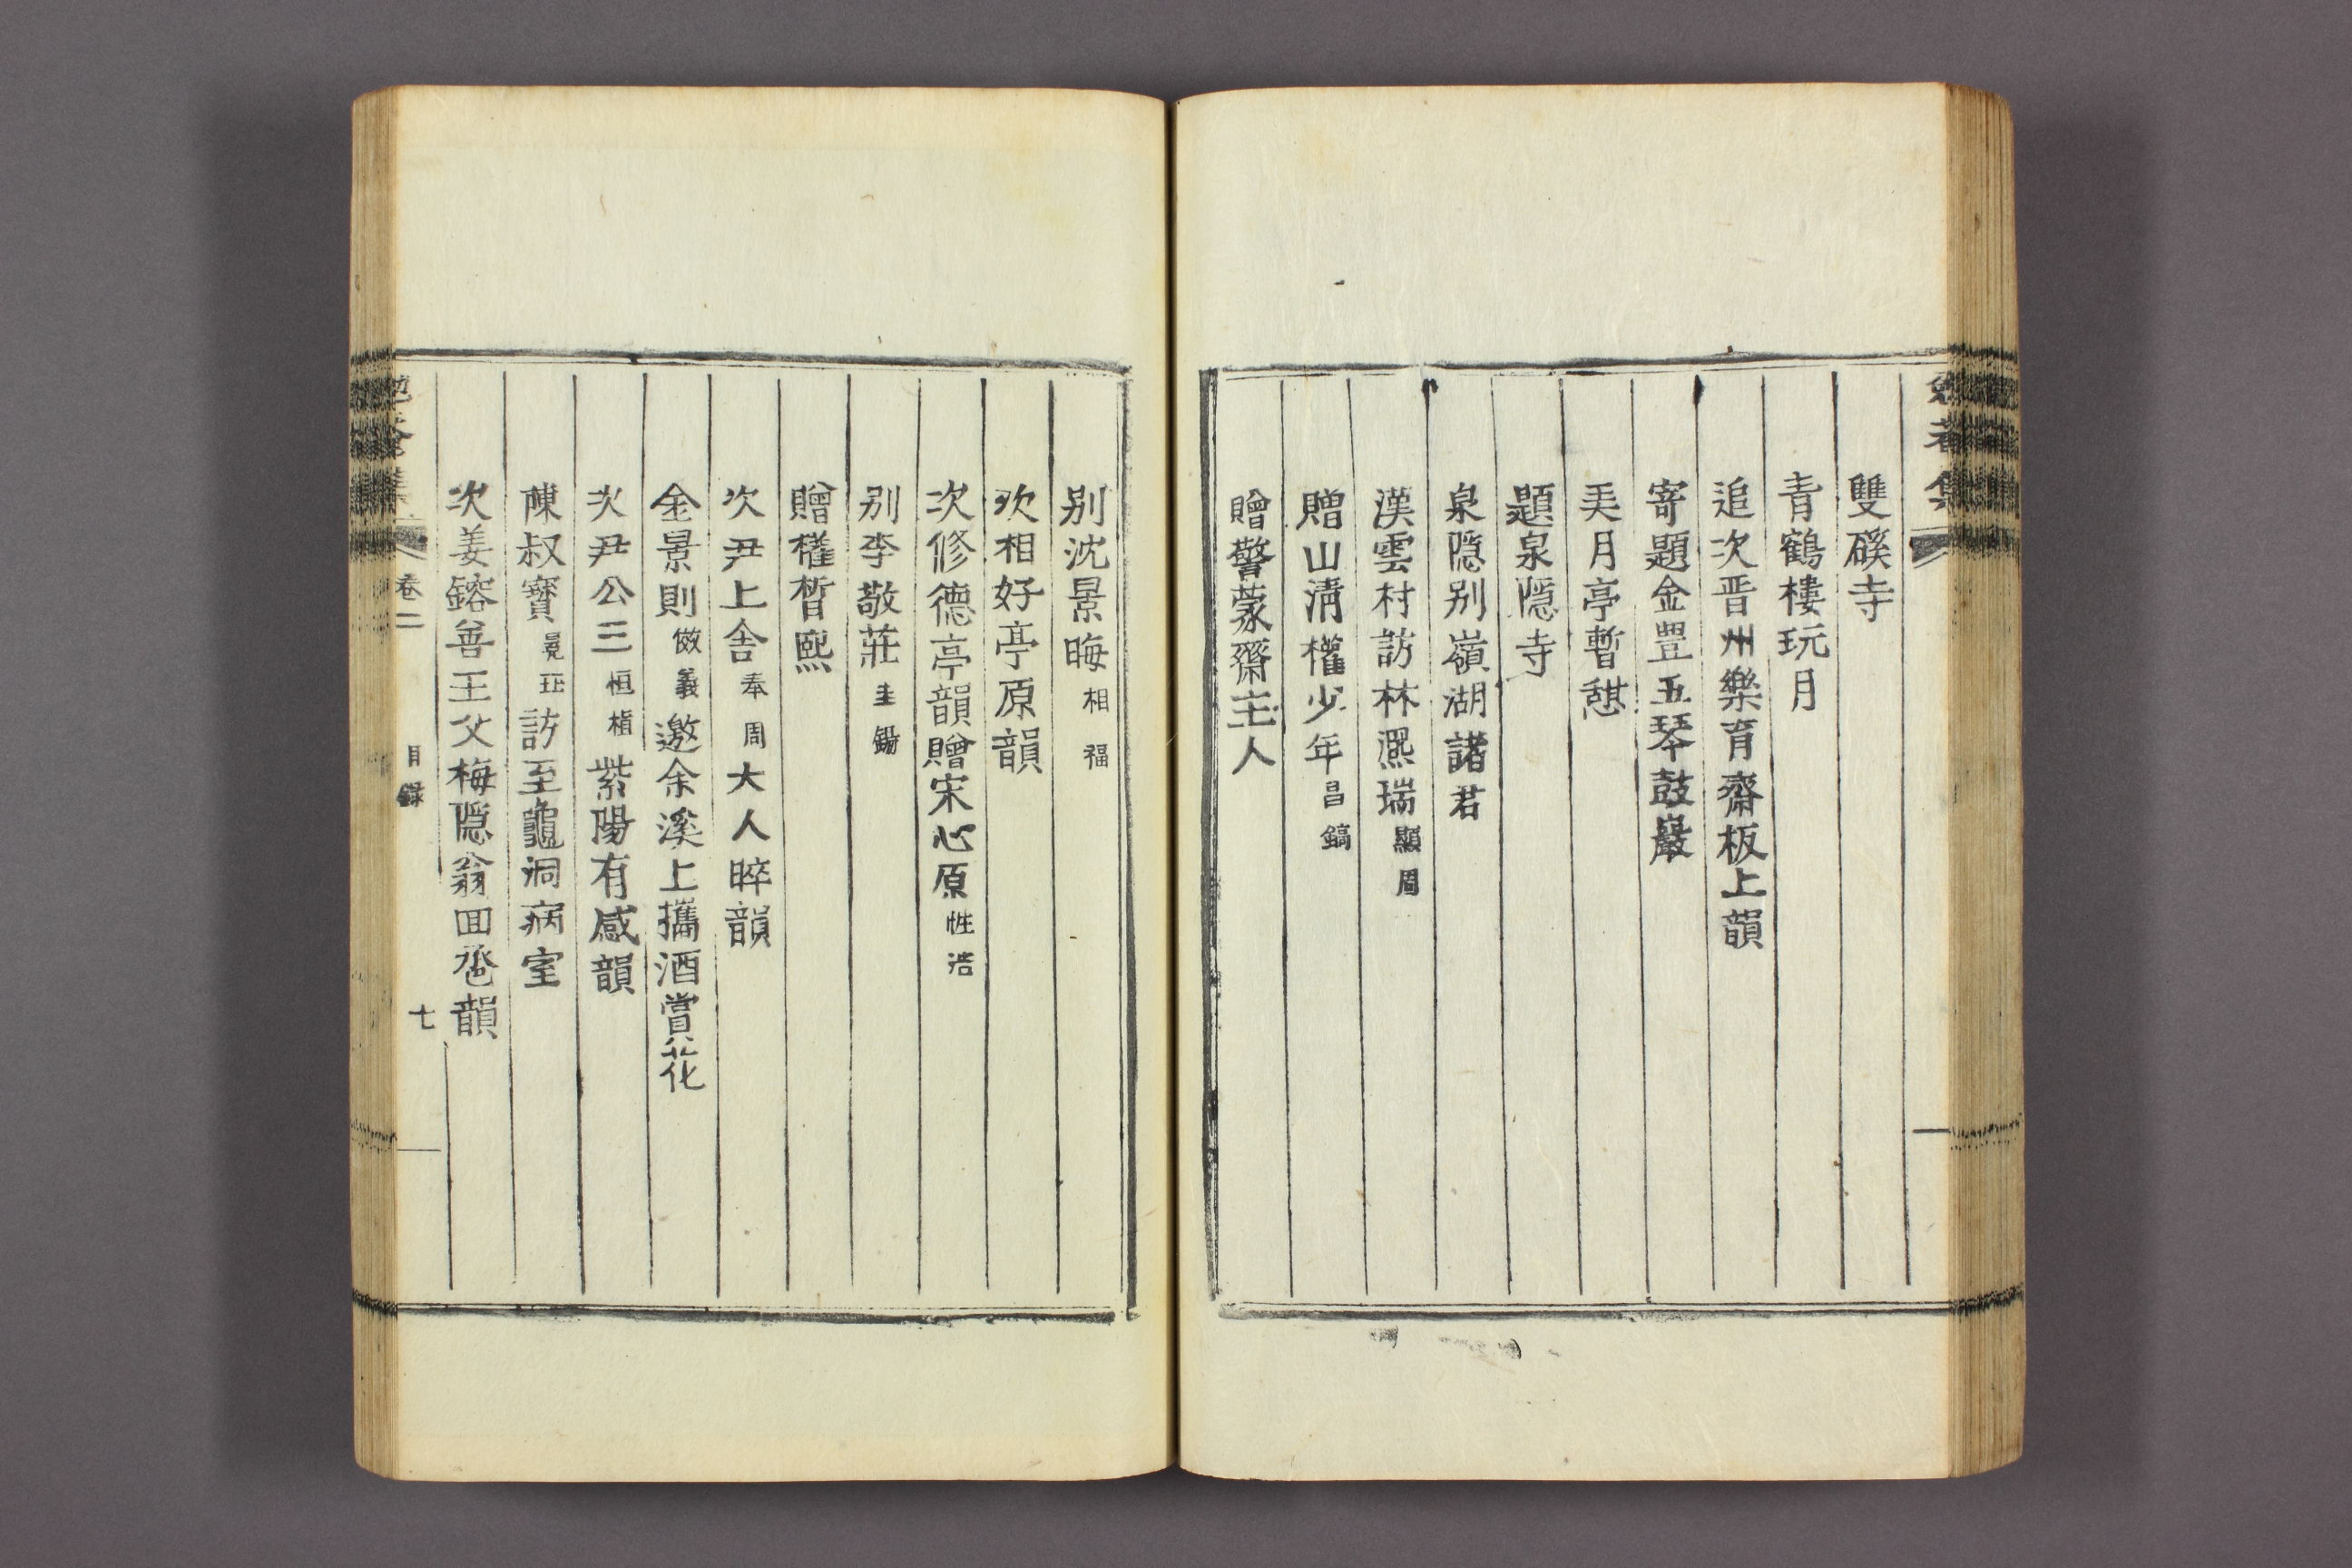 雙磎寺
青鶴樓玩月
追次晋州樂育齋板上韻
寄題金豊五琴鼓巖
美月亭暫憇
題泉隱寺
泉隱别嶺湖諸君
漢雲村訪林凞瑞顯周
贈山淸權少年昌鎬
贈警蒙齋主人
别沈景晦相福
次相好亭原韻
次修德亭韻贈宋心原性浩
别李敬莊圭錫
贈權晳熙
次尹上舍奉周大人晬韻
金景則儆義邀余溪上攜酒賞花
次尹公三恒植紫陽有感韻
陳叔寶晃玨訪至龜洞病室
次姜鎔善王父梅隱翁回巹韻
卷二
目録
七